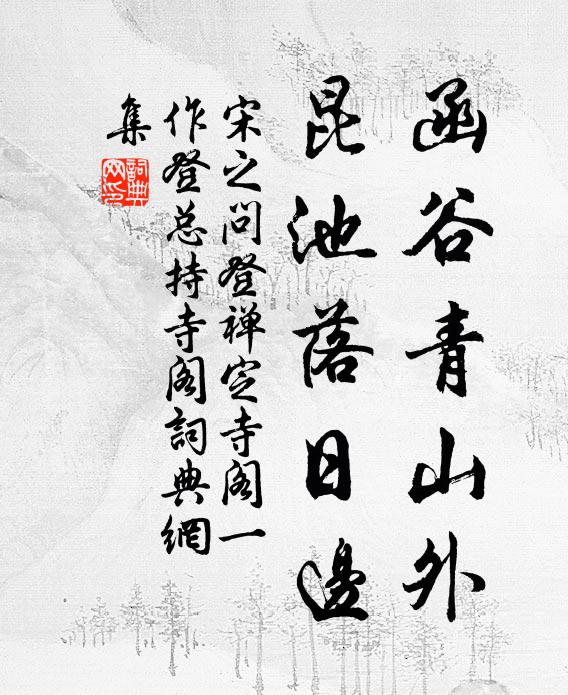 函谷青山外
昆池落日邊
宋之问登禅定寺阁一
作登总持寺阁詞典網
集
詞典
网印